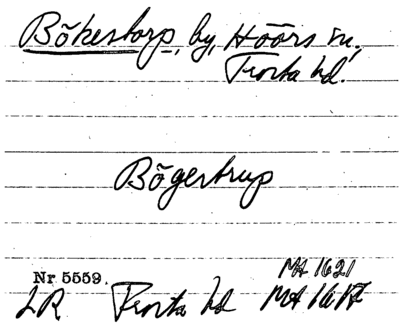 Bökestorp, by, Höörs sn,
Frosta hd.
Bögerstrup
MA 1621
Nr 5559.
LR Frosta hd MA